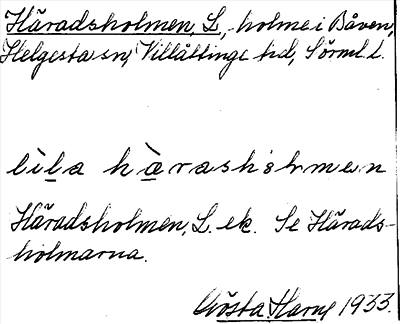 Häradsholmen, L., holme i Båven,
Helgesta sn, Villåttinge hd, Sörml. l.
lìla hàrashólmen
Häradsholmen, L. ek. Se Härads-
holmarna.
Gösta Harne 1933.